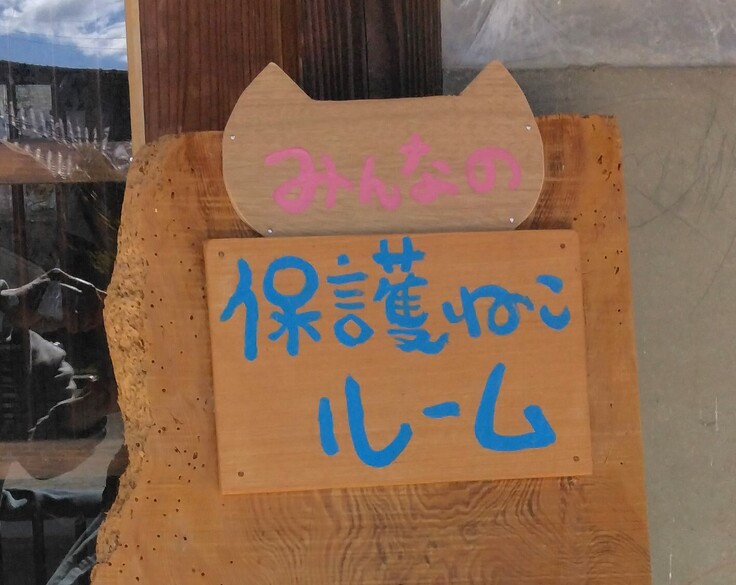 みんなの
保護ねこ
ルーム